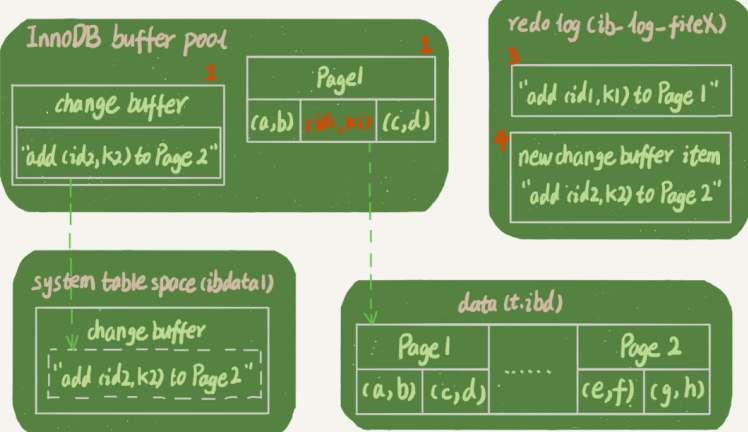 InnoDB buffer pool
1
2
Page1
change buffer
(a,b) (id1,k1) (c,d)
"add (id2,k2) to Page 2"
redo log (ib_log_fileX)
3
"add (id1,k1) to Page 1"
4
new change buffer item
"add (id2,k2) to Page 2"
system table space (ibdata1)
change buffer
"add (id2,k2) to Page 2"
data (t.ibd)
Page1 ...... Page 2
(a,b) (c,d) (e,f) (g,h)